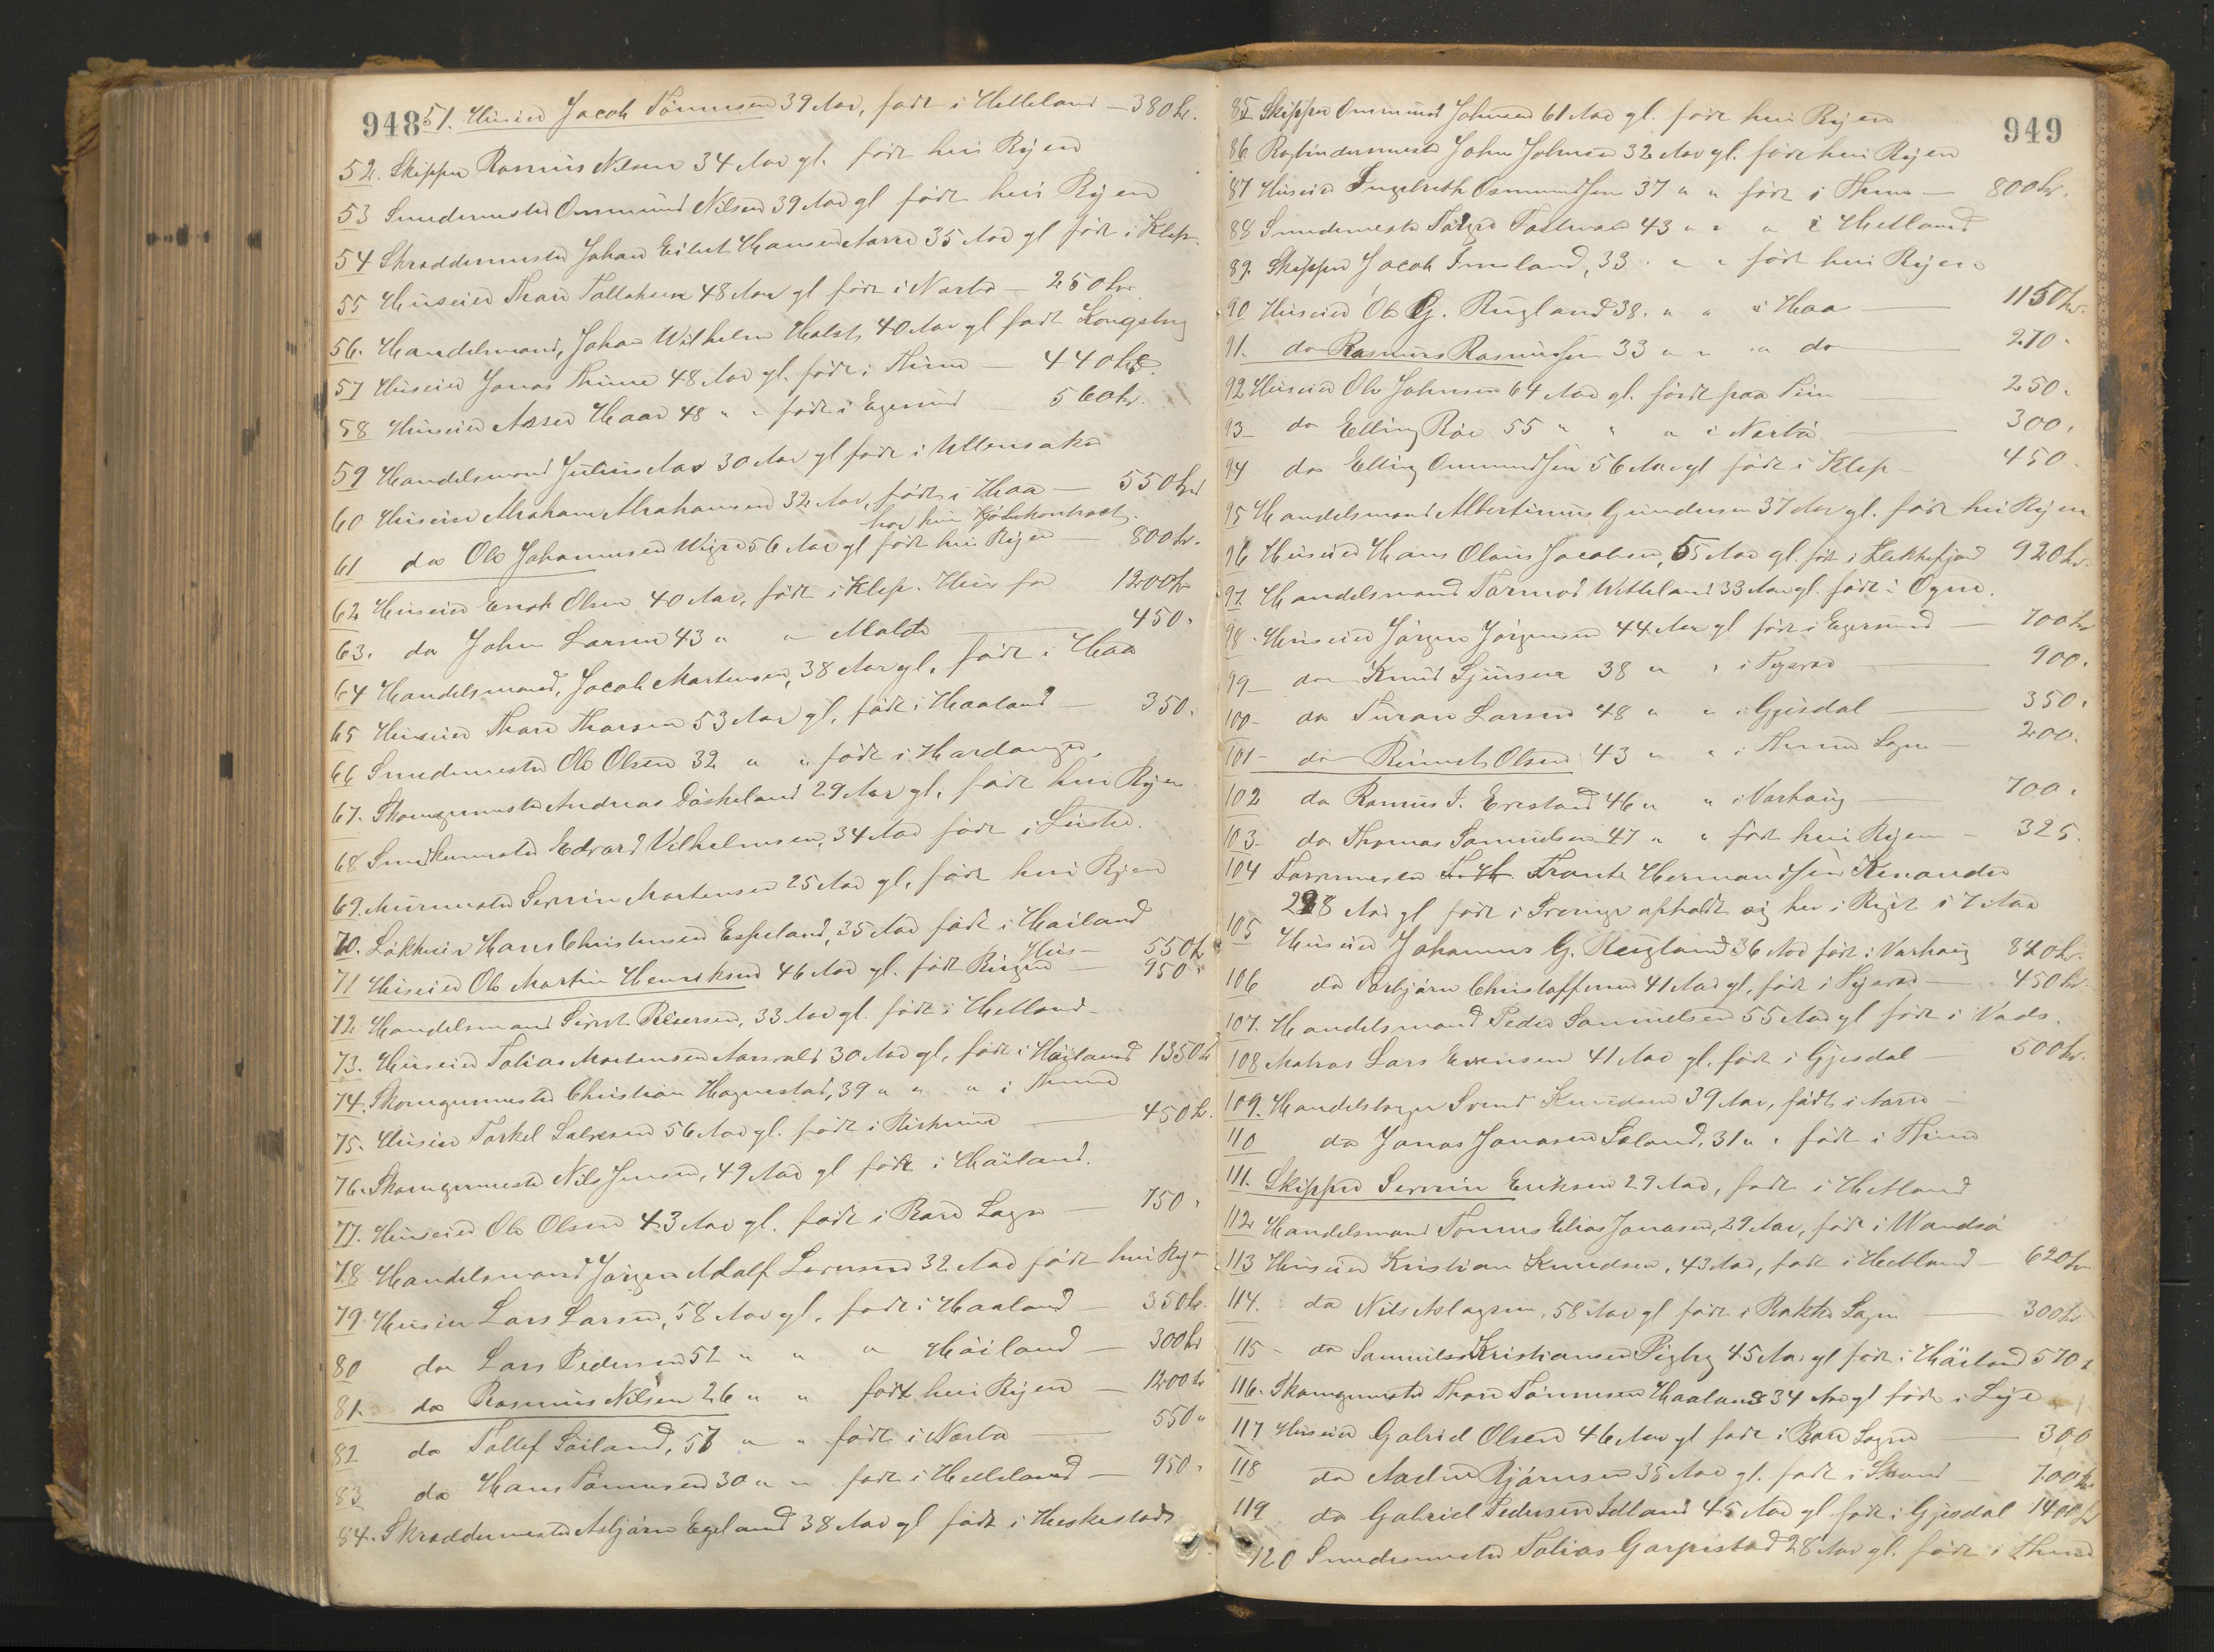 948
51. Huseier Jacob Tönnesen 39 Aar, født i Helleland — 380 kr.
52. Skipper Rasmus Nilsen 34 Aar gl. født her i Byen
53 Smedemester Ommund Nilsen 39 Aar gl født her i Byen
54 Skreddermester Johan Eilert Hansen Aarre 35 Aar gl født i Klep
55 Huseier Thore Tallaksen 48 Aar gl født i Nærbø — 250 kr.
56. Handelsmand, Johan Wilhelm Holst, 40 Aar gl født Kongsberg
57 Huseier Jonas Thime 48 Aar gl. født i Thime — 440 kr.
58 Huseier Asser Haar 48 " " født i Egersund — 560 kr.
59 Handelsmand Julius Aas 30 Aar gl født i Ullensaker
60 Huseier Abraham Abrahamsen 32 Aar, født i Haa — 550 kr
har kun Kjöbekontract.
61 do Ole Johannesen Wigre 56 Aar gl født her i Byen — 800 kr.
62 Huseier Enok Olsen 40 Aar, født i Klep. Hus for 1200 kr
63. do John Larsen 43 " " Molde — 450 "
64 Handelsmand, Jacob Martensen, 38 Aar gl, født i Haa
65 Huseier Thore Thorsen 53 Aar gl, født i Haaland — 350 "
66 Smedemester Ole Olsen 32 " " født i Hardanger.
67. Skomagermester Andreas Däskeland 29 Aar gl, født her i Byen
68 Edvard Vilhelmsen, 34 Aar født i Lister.
69. Murmester Servin Mortensen 25 Aar gl, født her i Byen
70. Hans Christensen Espeland, 35 Aar født i Høiland
Hus — 550 kr
71 Huseier Ole Martin Henriksen 46 Aar gl. født Bergen — 950 "
72 Handelsmand Sivert Reiersen, 33 Aar gl. født i Hetland
73. Huseier Tobias Mortensen Aarsvold 30 Aar gl, født i Høiland 1350 kr
74. Skomagermester Christian Hognestad, 39 " " " i Thime
75. Huseier Torkel Salvesen 56 Aar gl. født i Birkrim — 450 kr.
76. Skomagermester Nils Jensen, 49 Aar gl født i Høiland.
77. Huseier Ole Olsen 43 Aar gl. født i Bore Sogn — 750 "
78 Handelsmand Jörgen Adolf Lornsen 32 Aar født her i Byen
79 Huseier Lars Larsen, 58 Aar gl, født i Haaland — 350 kr.
80 do Lars Pedersen 52 " " " Høiland — 300 kr
81. do Rasmus Nilsen 26 " " født her i Byen — 1200 kr
82 do Tollef Söiland, 57 " " født i Nærbø — 550 "
83 do Hans Tönnesen 30 " " født i Helleland — 950 "
84. Skreddermester Asbjörn Egeland 38 Aar gl født i Heskestad
949
85 Skipper Ommund Johnsen 61 Aar gl. født her i Byen
86 Bogbindermester John Johnsen 32 Aar gl. født her i Byen
87 Huseier Ingebreth Osmundsen 37 " " født i Thime — 800 kr.
88 Smedemester 43 " " " i Hetland
89. Skipper Jacob Imsland, 33 " " født her i Byen
90 Huseier Ole G. Rugland 38. " " i Haa — 1150 kr.
91. do Rasmus Rasmussen 33 " " " do — 270 "
92 Huseier Ole Johnsen 64 Aar gl. født paa — 250 "
93 — do Elling Röe 55 " " " i Nærbø — 300 "
94 do Elling Ommundsen 56 Aar gl født i Klep — 450 "
95 Handelsmand Albertinius Gundersen 37 Aar gl. født her i Byen
96 Huseier Hans Olaus Jacobsen, 55 Aar gl. født i Flekkefjord 920 kr.
97 Handelsmand Tormod Wetteland 33 Aar gl. født i Ogne.
98. Huseier Jörgen Jörgensen 44 Aar gl født i Egersund — 700 kr
99 — do Knud Sjursen 38 " " i Tysvær — 900 "
100 — do Turan Larsen 48 " " i Gjesdal — 350 "
101 — do Reinert Olsen 43 " " i Thime Sogn — 200 "
102 do Rasmus I. Evestad 46 " " i Varhaug — 700 "
103 — do Thomas Samuelsen 47 " " født her i Byen — 325 "
104 Frants Hermandsen Kenander
28 Aar gl født i Sverige opholdt sig her i Riget i 7 Aar
105 Huseier Johannes G. Reigland 36 Aar født i Varhaug 820 kr.
106 do Torbjörn Christoffersen 41 Aar gl, født i Tysvær — 450 kr.
107. Handelsmand Peder Samuelsen 55 Aar gl født i Vads.
108 Matros Lars Evensen 41 Aar gl, født i Gjesdal 500 kr.
109. Svend Knudsen 39 Aar, født i Aarre —
110 do Jonas Jonasen Sæland, 31 " " født i Thime
111. Skipper Servin Eriksen 29 Aar, født i Hetland
112 Handelsmand Tönnes Elias Jonasen, 29 Aar, født i Wandsö
113 Huseier Kristian Knudsen, 43 Aar, født i Hetland — 620 kr
114. do Nils Aslagsen, 58 Aar gl født i Bakke Sogn — 300 kr
115 — do Samuel Kristiansen 45 Aar gl født i Høiland 570 "
116. Skomagermester Thore Tönnesen Haaland 34 Aar gl født i Lye
117 Huseier Gabriel Olsen 46 Aar gl født i Bore Sogn — 300
118 do Björnsen 35 Aar gl. født i Strand — 700 kr
119 do Gabriel Pedersen Edland 45 Aar gl født i Gjesdal 1400 kr
120 Smedemester Tobias Garpestad 28 Aar gl. født i Thime